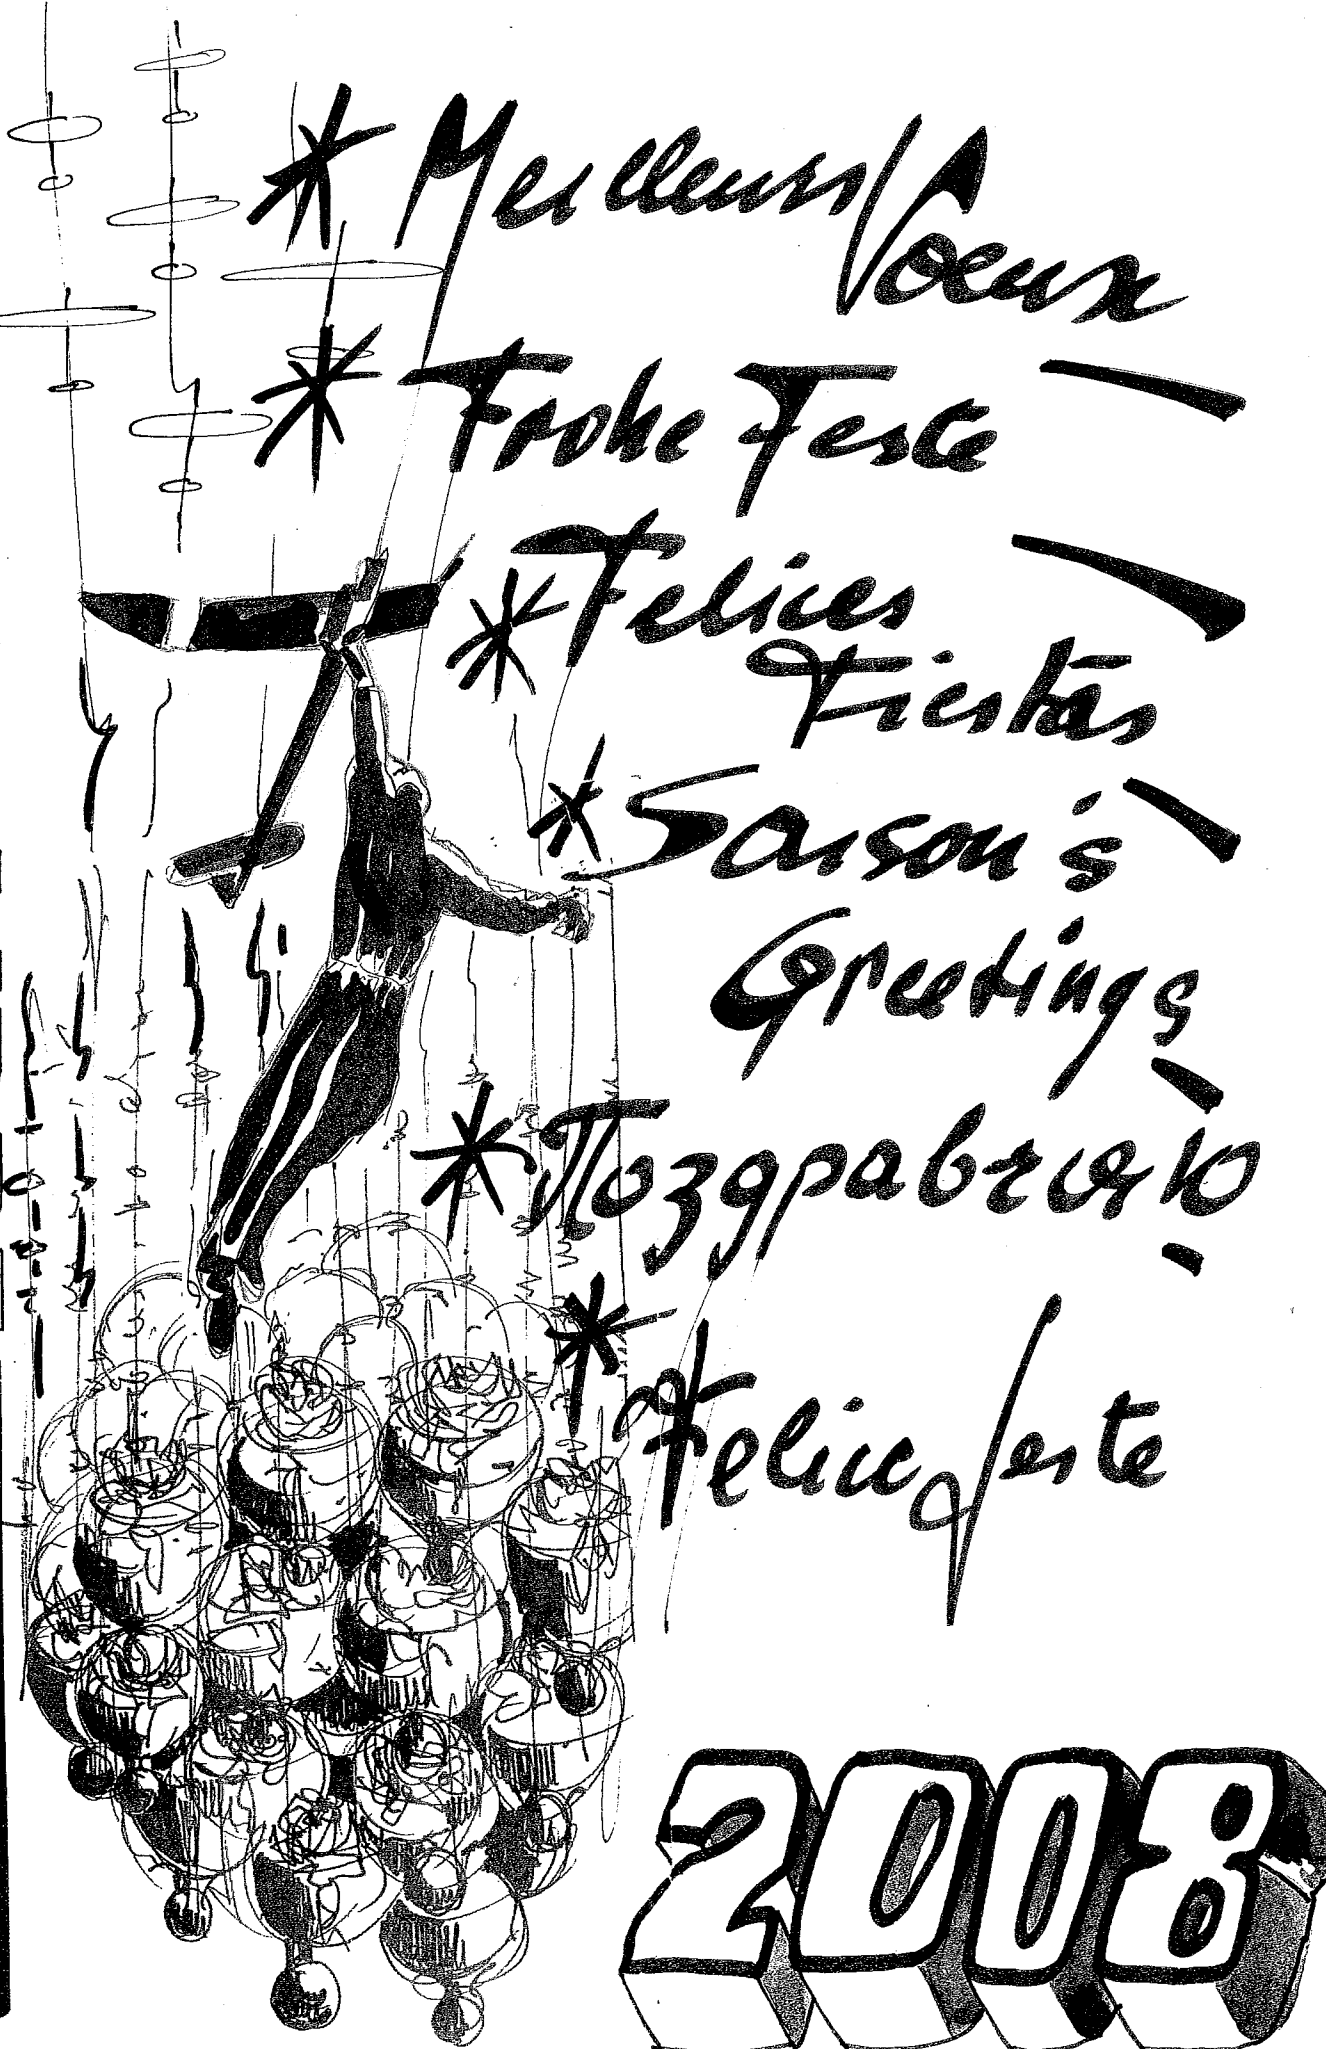 * Meilleurs Voeux
* Frohe Feste
* Felices
Fiestas
* Saison's
Greetings
* Поздравляю
* Felice feste
2008